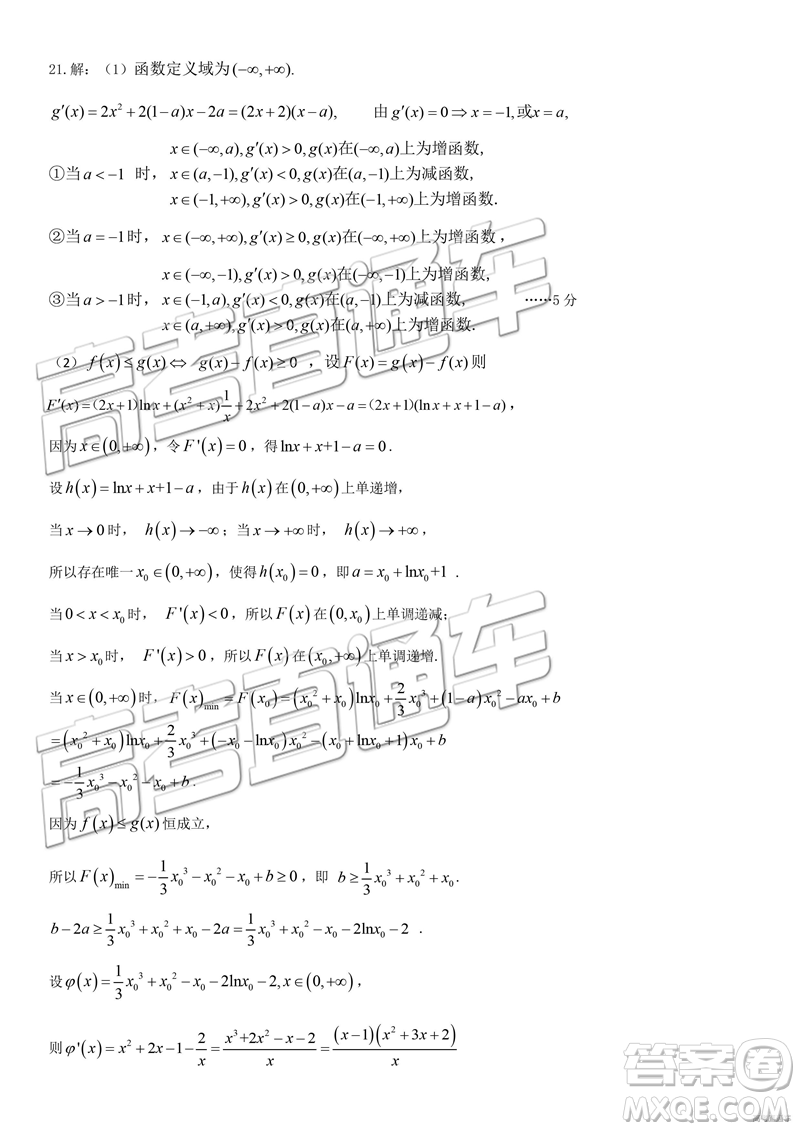 21.解：（1）函数定义域为(−∞,+∞).
g′(x)=2x²+2(1−a)x−2a=(2x+2)(x−a),　由g′(x)=0⇒x=−1,或x=a,
x∈(−∞,a),g′(x)>0,g(x)在(−∞,a)上为增函数,
①当a<−1 时，x∈(a,−1),g′(x)<0,g(x)在(a,−1)上为减函数,
x∈(−1,+∞),g′(x)>0,g(x)在(−1,+∞)上为增函数.
②当a=−1时，x∈(−∞,+∞),g′(x)≥0,g(x)在(−∞,+∞)上为增函数，
x∈(−∞,−1),g′(x)>0,g(x)在(−∞,−1)上为增函数,
③当a>−1时，x∈(−1,a),g′(x)<0,g(x)在(a,−1)上为减函数,　……5分
x∈(a,+∞),g′(x)>0,g(x)在(a,+∞)上为增函数.
（2）f(x)≤g(x)⇔ g(x)−f(x)≥0 ，设F(x)=g(x)−f(x)则
F′(x)=(2x+1)lnx+(x²+x)1/x+2x²+2(1−a)x−a=(2x+1)(lnx+x+1−a)，
因为x∈(0,+∞)，令F'(x)=0，得lnx+x+1−a=0.
设h(x)=lnx+x+1−a，由于h(x)在(0,+∞)上单递增，
当x→0时， h(x)→−∞；当x→+∞时， h(x)→+∞，
所以存在唯一x₀∈(0,+∞)，使得h(x₀)=0，即a=x₀+lnx₀+1 .
当0<x<x₀时， F'(x)<0，所以F(x)在(0,x₀)上单调递减；
当x>x₀时， F'(x)>0，所以F(x)在(x₀,+∞)上单调递增.
当x∈(0,+∞)时，F(x)min=F(x₀)=(x₀²+x₀)lnx₀+2/3x₀³+(1−a)x₀²−ax₀+b
=(x₀²+x₀)lnx₀+2/3x₀³+(−x₀−lnx₀)x₀²−(x₀+lnx₀+1)x₀+b
=−1/3x₀³−x₀²−x₀+b.
因为f(x)≤g(x)恒成立，
所以F(x)min=−1/3x₀³−x₀²−x₀+b≥0，即 b≥1/3x₀³+x₀²+x₀.
b−2a≥1/3x₀³+x₀²+x₀−2a=1/3x₀³+x₀²−x₀−2lnx₀−2 .
设φ(x)=1/3x₀³+x₀²−x₀−2lnx₀−2,x∈(0,+∞)，
则φ'(x)=x²+2x−1−2/x=(x³+2x²−x−2)/x=(x−1)(x²+3x+2)/x
高考直通车
高考直通车
答案卷
MXQE.COM